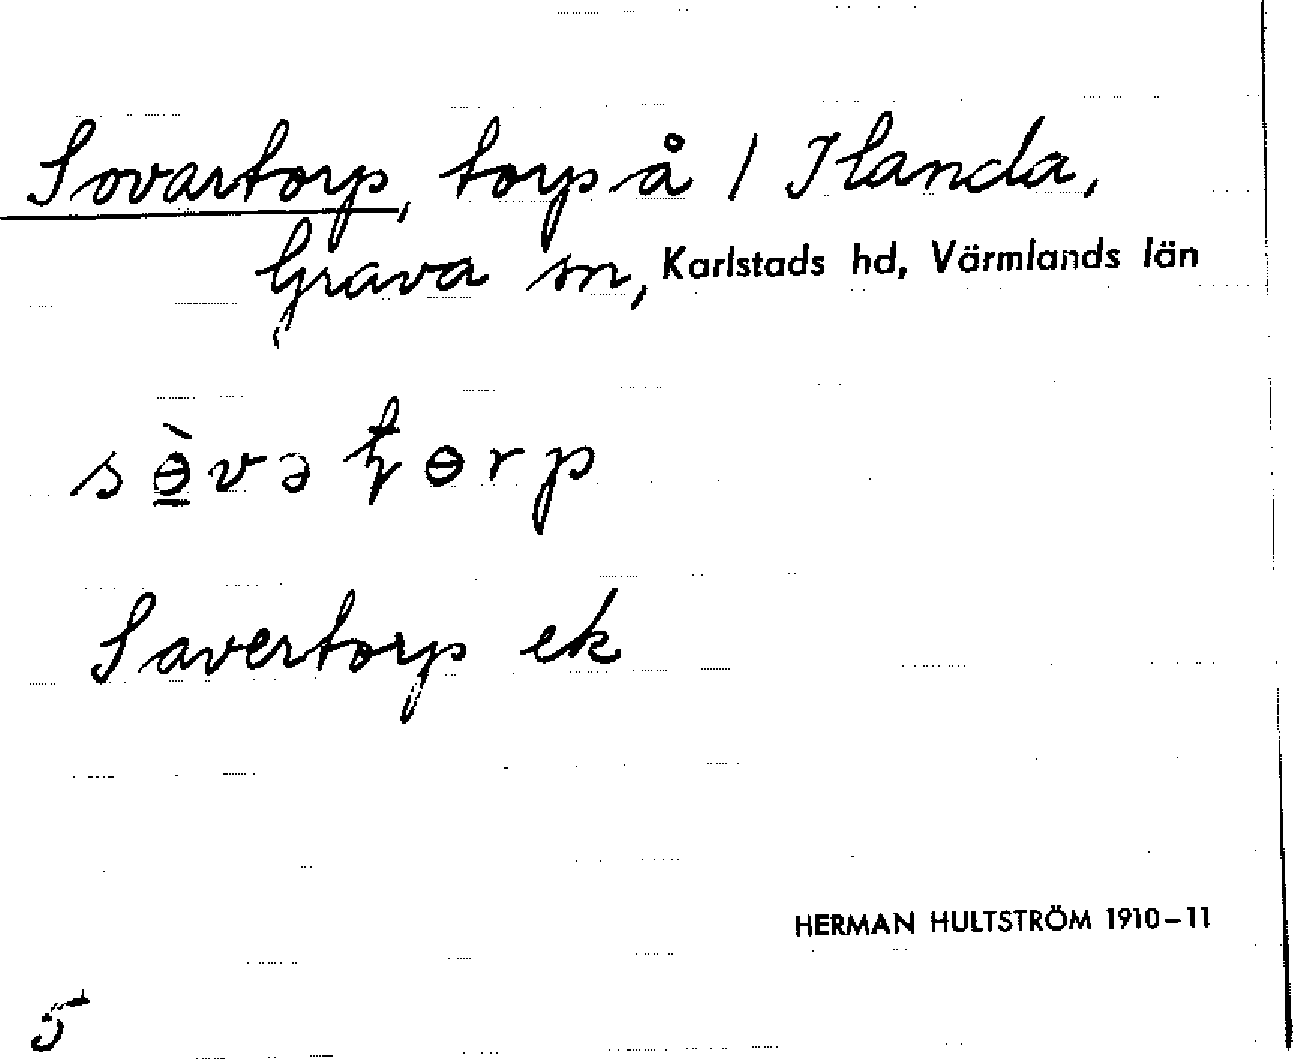 Sovartorp, torp å 1 Ilanda,
Grava sn, Karlstads hd, Värmlands län
sɵ̲̀vəʈɵrp
Savertorp ek
HERMAN HULTSTRÖM 1910–11
5